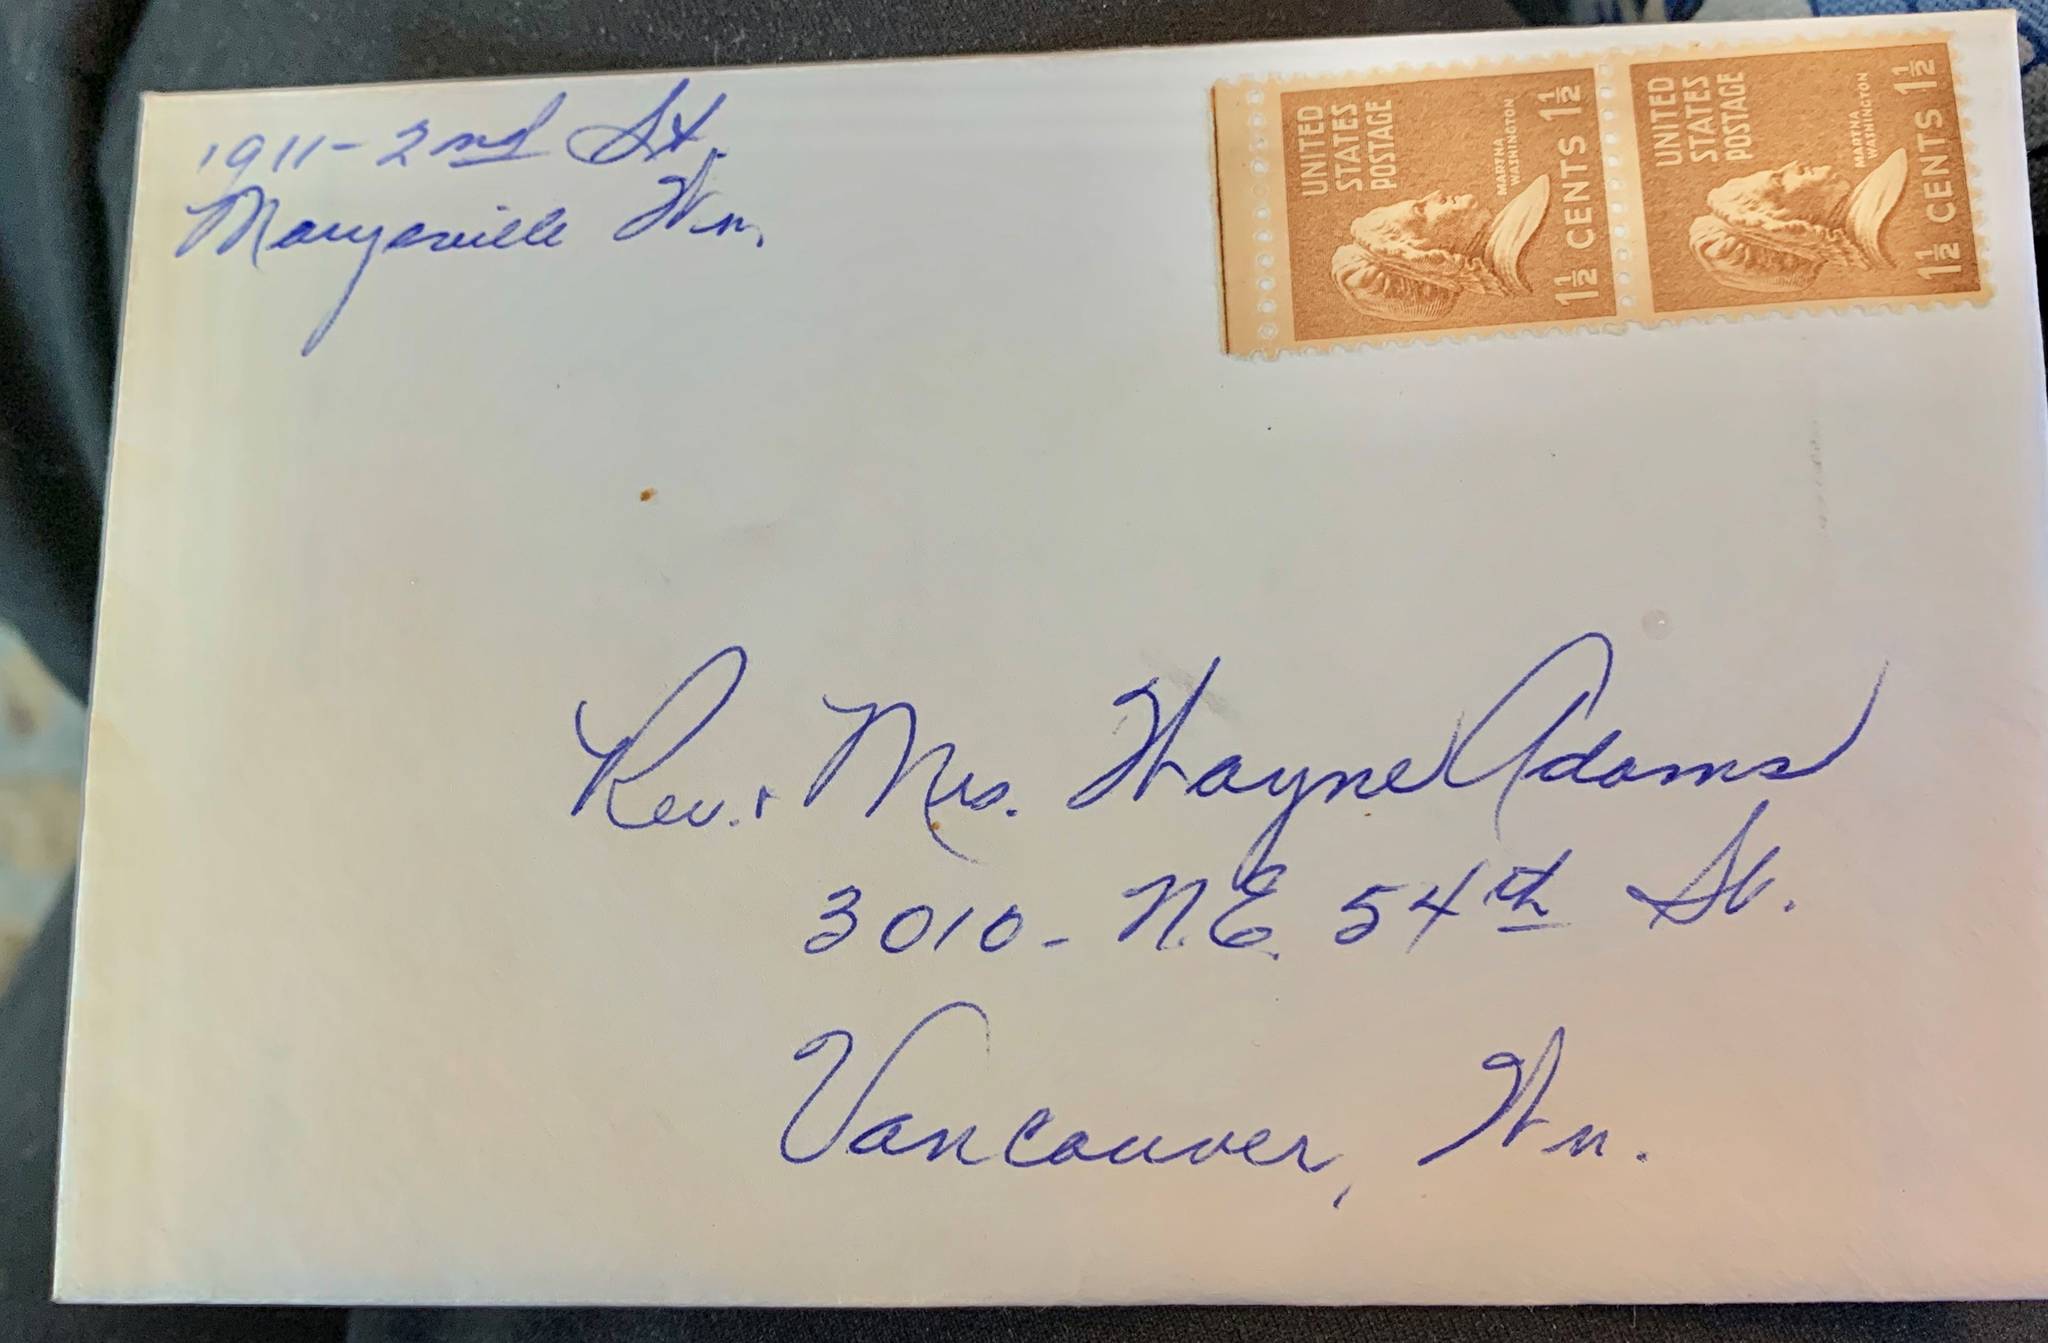 1911 - 2nd St.
Marysville Wn.
UNITED
STATES
POSTAGE
MARTHA
WASHINGTON
1 1/2 CENTS 1 1/2
UNITED
STATES
POSTAGE
MARTHA
WASHINGTON
1 1/2 CENTS 1 1/2
Rev. + Mrs. Wayne Adams
3010 - N.E. 54th St.
Vancouver, Wn.